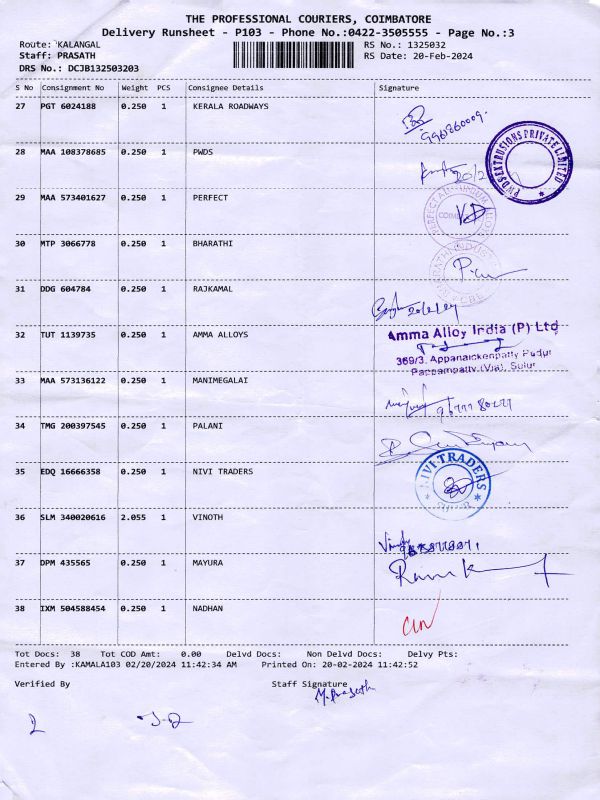 THE PROFESSIONAL COURIERS, COIMBATORE
Delivery Runsheet - P103 - Phone No.:0422-3505555 - Page No.:3
Route: KALANGAL RS No.: 1325032
Staff: PRASATH RS Date: 20-Feb-2024
DRS No.: DCJB132503203
S No Consignment No Weight PCS Consignee Details Signature
27 PGT 6024188 0.250 1 KERALA ROADWAYS
28 MAA 108378685 0.250 1 PWDS
PWDS EXTRUSIONS PRIVATE LIMITED
29 MAA 573401627 0.250 1 PERFECT
30 MTP 3066778 0.250 1 BHARATHI
31 DDG 604784 0.250 1 RAJKAMAL
20/2/24
32 TUT 1139735 0.250 1 AMMA ALLOYS
Amma Alloy India (P) Ltd
369/3, Appanaickenpatty Pudur
Pappampatty (Via), Sulur
33 MAA 573136122 0.250 1 MANIMEGALAI
34 TMG 200397545 0.250 1 PALANI
35 EDQ 16666358 0.250 1 NIVI TRADERS
NIVI TRADERS
SULUR
36 SLM 340020616 2.055 1 VINOTH
37 DPM 435565 0.250 1 MAYURA
38 IXM 504588454 0.250 1 NADHAN
Tot Docs: 38 Tot COD Amt: 0.00 Delvd Docs: Non Delvd Docs: Delvy Pts:
Entered By :KAMALA103 02/20/2024 11:42:34 AM Printed On: 20-02-2024 11:42:52
Verified By Staff Signature
M.Prasath